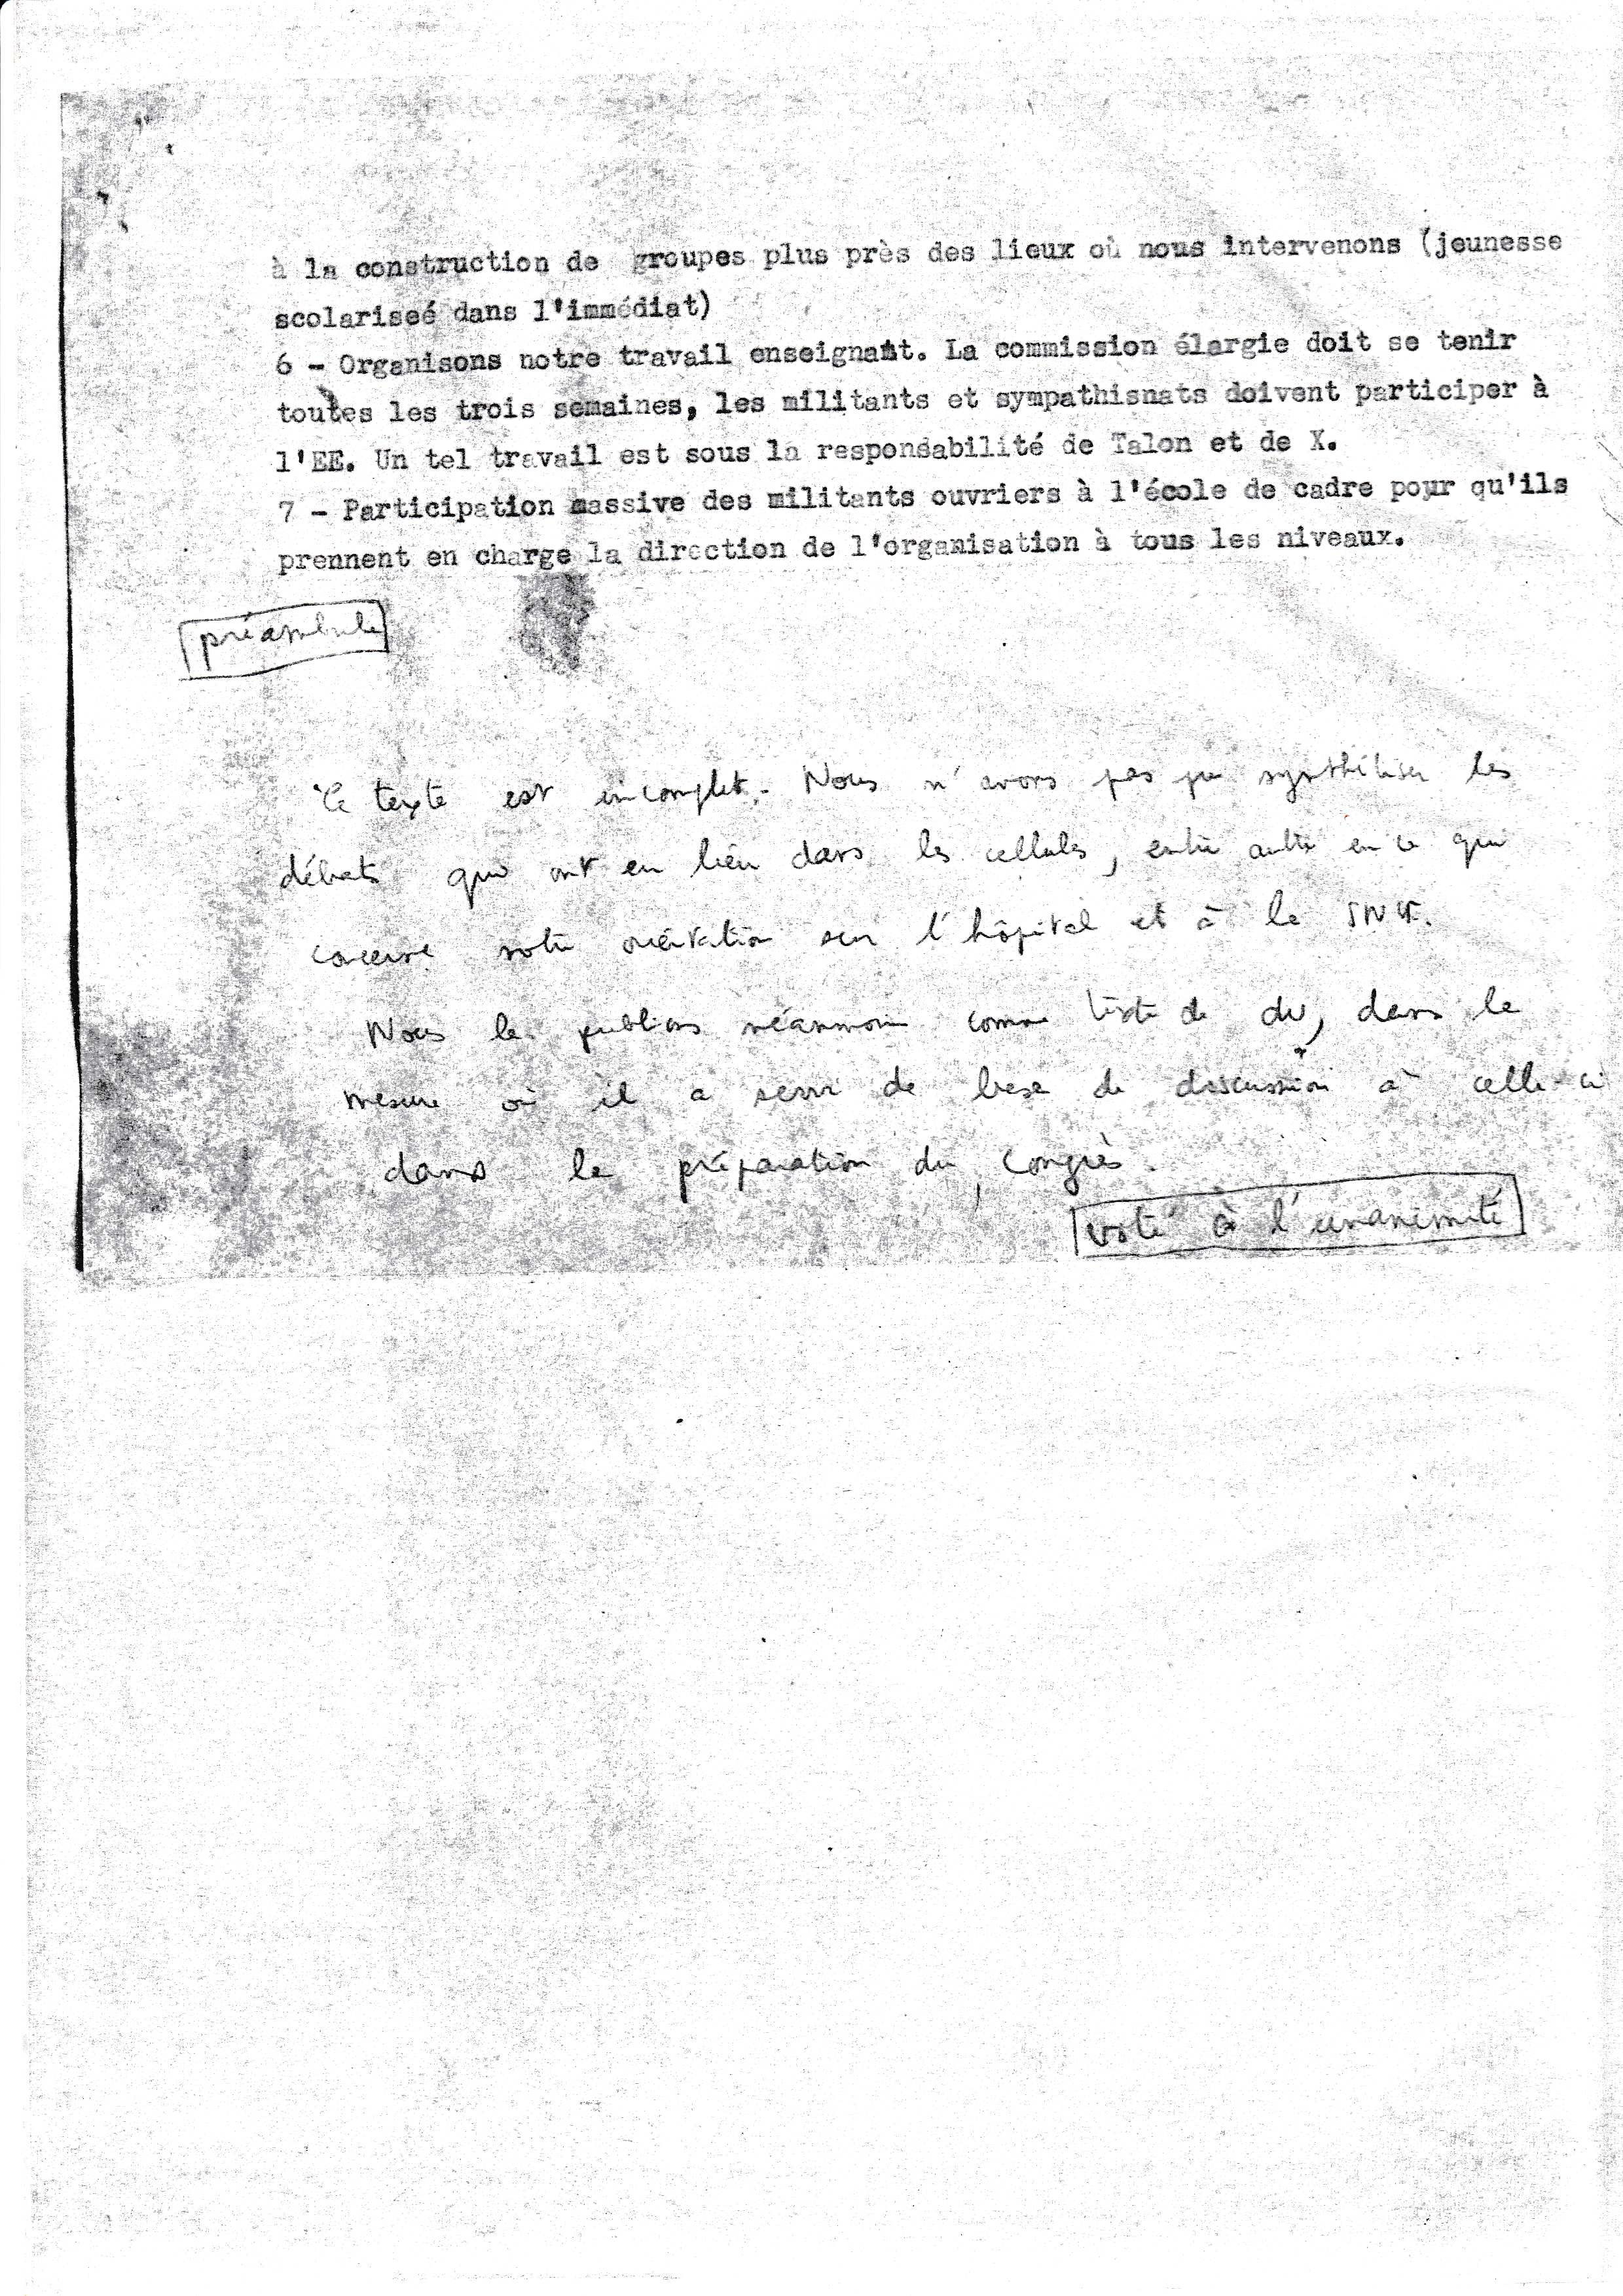 à la construction de groupes plus près des lieux où nous intervenons (jeunesse
scolariseé dans l'immédiat)
6 - Organisons notre travail enseignant. La commission élargie doit se tenir
toutes les trois semaines, les militants et sympathisnats doivent participer à
l'EE. Un tel travail est sous la responsabilité de Talon et de X.
7 - Participation massive des militants ouvriers à l'école de cadre pour qu'ils
prennent en charge la direction de l'organisation à tous les niveaux.
préambule
Ce texte est incomplet. Nous n'avons pas pu synthétiser les
débats qui ont eu lieu dans les cellules, entre autre en ce qui
concerne notre orientation sur l'hôpital et à la
Nous le publions néanmoins comme texte de dv, dans la
mesure où il a servi de base de discussion à celle-ci
dans la préparation du congrès.
voté à l'unanimité